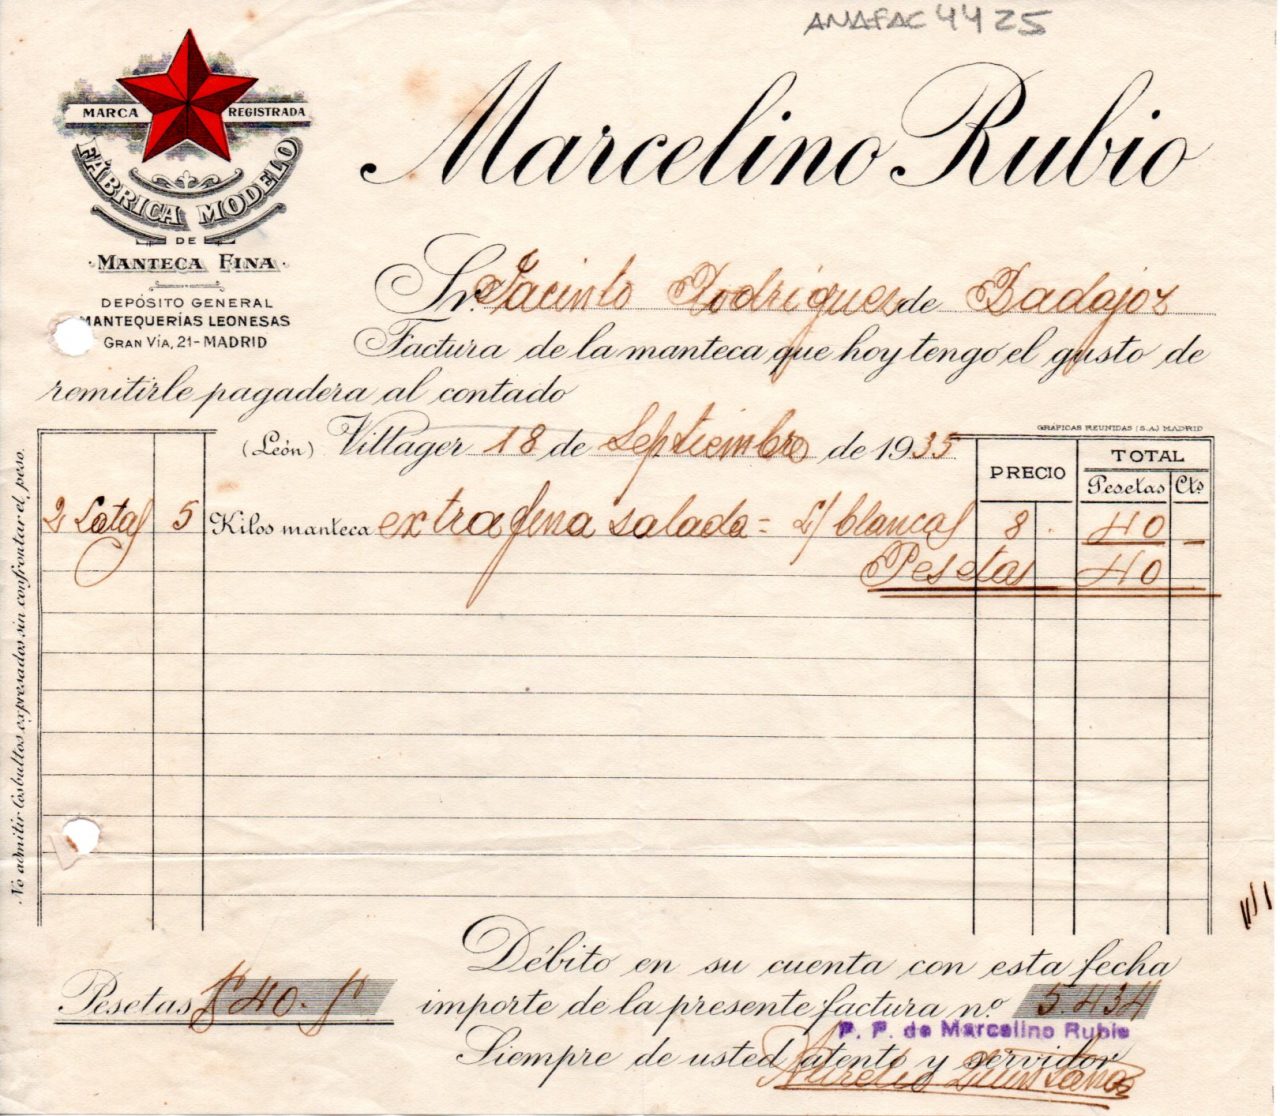 ANAFAC 4425
MARCA REGISTRADA
FÁBRICA MODELO
DE
MANTECA FINA
DEPÓSITO GENERAL
MANTEQUERÍAS LEONESAS
GRAN VÍA, 21-MADRID
Marcelino Rubio
Sr. Jacinto Rodríguez de Badajoz
Factura de la manteca que hoy tengo el gusto de
remitirle pagadera al contado
GRÁFICAS REUNIDAS (S.A.) MADRID
(León) Villager 18 de Septiembre de 1935
PRECIO TOTAL
Pesetas Cts
2 Latas 5 Kilos manteca extrafina salada = L/ blancas 8 . 40 —
Pesetas 40
No admitir los bultos expresados sin confrontar el peso.
Débito en su cuenta con esta fecha
Pesetas 40.
importe de la presente factura n.º 5.434
P. P. de Marcelino Rubio
Siempre de usted atento y servidor
Aurelio